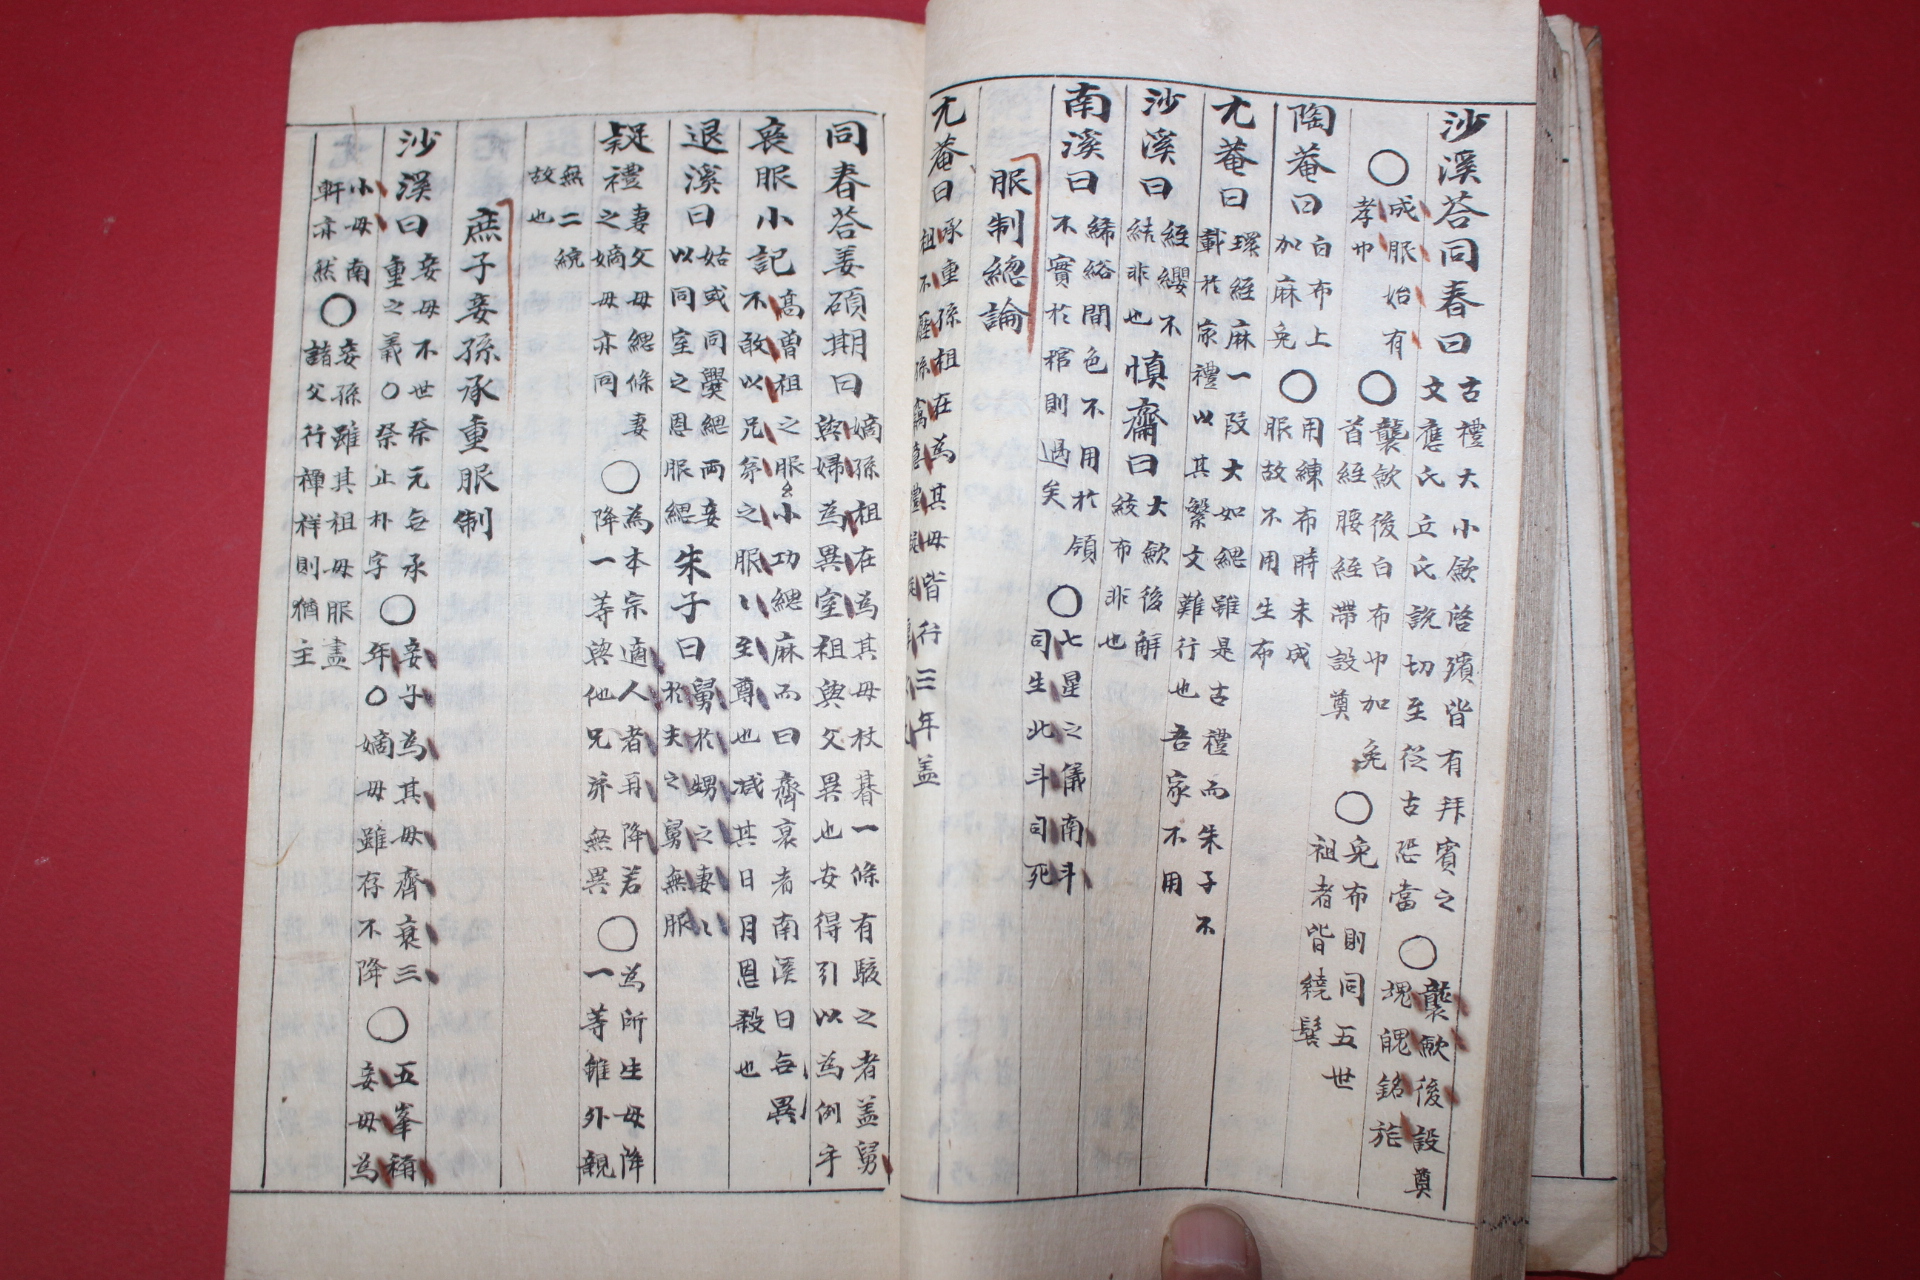 沙溪答同春曰
古禮大小斂啓殯皆有拜賓之
文應氏立氏說切至從古恐當
○
襲斂後設奠
魂帛銘旌
○
成服始有
孝巾
○
襲斂後白布巾加免
首絰腰絰帶設奠
○
免布則同五世
祖者皆繞髻
陶菴曰
白布上
加麻免
○
用練布時未成
服故不用生布
尤菴曰
環絰麻一段大如緦雖是古禮而朱子不
載於家禮以其繁文難行也吾家不用
沙溪曰
絰纓不
結非也
愼齋曰
大斂後辭
絞布非也
南溪曰
絺綌間色不用於領
不實於棺則過矣
○
七星之儀南斗
司生北斗司死
服制總論
尤菴曰
承重孫祖在為其母皆行三年盖
同春答姜碩期曰
嫡孫祖在為其母杖朞一條有駁之者盖舅
與婦為異室祖與父異也安得引以為例乎
喪服小記
高曽祖之服
小功緦麻而曰齊衰者南溪曰與異
不敢以兄弟之服〻至尊也减其日月恩殺也
退溪曰
姑或同爨緦兩妾
以同室之恩服緦
朱子曰
舅於甥之妻〻
於夫之舅無服
疑禮
妻父母緦條妻
之嫡母亦同
○
為本宗適人者再降若
降一等與他兄弟無異
○
為所生母降
一等雖外親
無二統
故也
庶子妾孫承重服制
沙溪曰
妾母不世祭元無承
重之義○祭止朴字
○
妾子為其母齊衰三
年○嫡母雖存不降
○
五峯稱
妾母為
小母南
軒亦然
○
妾孫雖其祖母服盡
諸父行禫祥則猶主